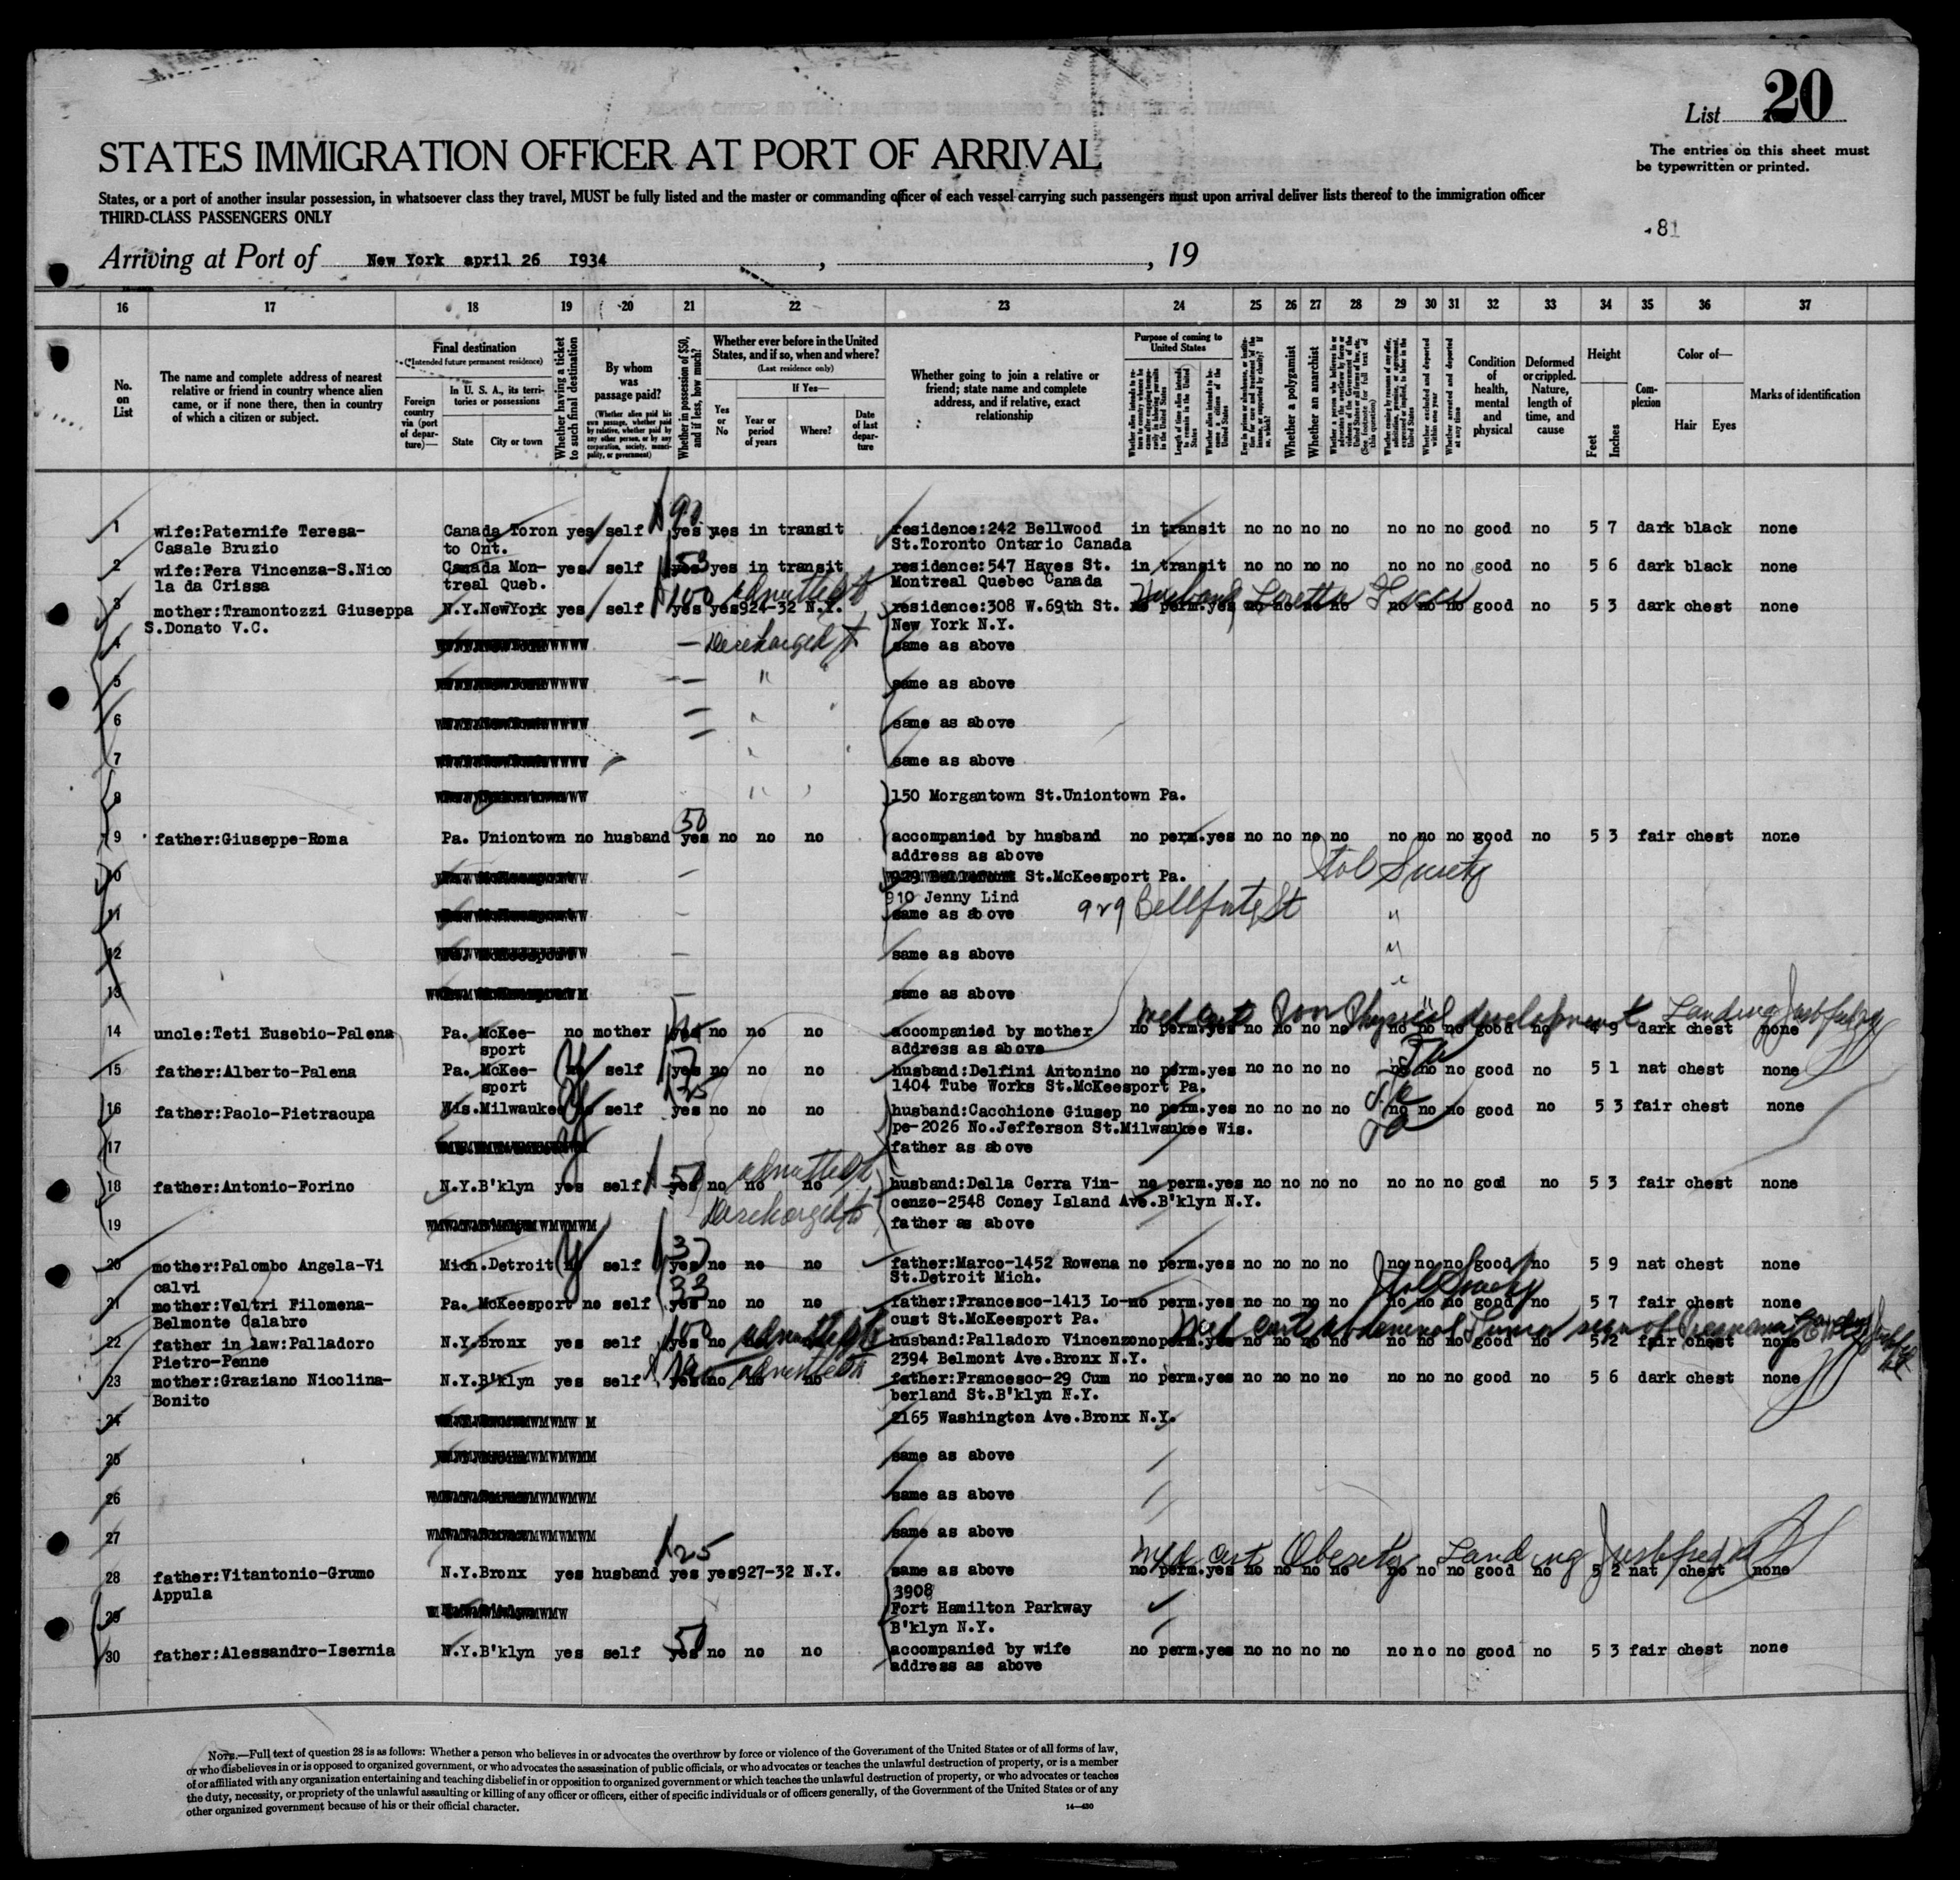 List 20
The entries on this sheet must
be typewritten or printed.
STATES IMMIGRATION OFFICER AT PORT OF ARRIVAL
States, or a port of another insular possession, in whatsoever class they travel, MUST be fully listed and the master or commanding officer of each vessel carrying such passengers must upon arrival deliver lists thereof to the immigration officer
THIRD-CLASS PASSENGERS ONLY
81
Arriving at Port of New York april 26 1934, , 19
16 17 18 19 20 21 22 23 24 25 26 27 28 29 30 31 32 33 34 35 36 37
No. on List
The name and complete address of nearest relative or friend in country whence alien came, or if none there, then in country of which a citizen or subject.
Final destination
(*Intended future permanent residence)
Foreign country via (port of departure)—
In U. S. A., its territories or possessions
State City or town
Whether having a ticket to such final destination
By whom was passage paid?
(Whether alien paid his own passage, whether paid by relative, whether paid by any other person, or by any corporation, society, municipality, or government)
Whether in possession of $50, and if less, how much?
Whether ever before in the United States, and if so, when and where?
(Last residence only)
Yes or No
If Yes—
Year or period of years
Where?
Date of last departure
Whether going to join a relative or friend; state name and complete address, and if relative, exact relationship
Purpose of coming to United States
Whether a polygamist
Whether an anarchist
Whether excluded and deported within one year
Whether arrested and deported at any time
Condition of health, mental and physical
Deformed or crippled. Nature, length of time, and cause
Height
Feet Inches
Complexion
Color of—
Hair Eyes
Marks of identification
90
1 wife:Paternife Teresa- Canada Toron yes self yes yes in transit residence:242 Bellwood in transit no no no no no no no good no 5 7 dark black none
Casale Bruzio to Ont. St.Toronto Ontario Canada
53
2 wife:Fera Vincenza-S.Nico Canada Mon- yes self yes yes in transit residence:547 Hayes St. in transit no no no no no no no good no 5 6 dark black none
la da Crissa treal Queb. Montreal Quebec Canada
100 admitted Husband Loretta
3 mother:Tramontozzi Giuseppa N.Y.NewYork yes self yes yes924-32 N.Y. residence:308 W.69th St. no perm.yes no no no no no no no good no 5 3 dark chest none
S.Donato V.C. New York N.Y.
4 — Discharged same as above
5 — " same as above
6 — " same as above
7 " same as above
8 " 150 Morgantown St.Uniontown Pa.
50
9 father:Giuseppe-Roma Pa. Uniontown no husband yes no no no accompanied by husband no perm.yes no no no no no no no good no 5 3 fair chest none
address as above
10 — St.McKeesport Pa.
910 Jenny Lind
11 — same as above 929 St "
12 — same as above "
13 — same as above "
Med cert Poor Physical development Landing
14 uncle:Teti Eusebio-Palena Pa. McKee- no mother yes no no no accompanied by mother no perm.yes no no no no no no no good no 4 9 dark chest none
sport address as above
15 father:Alberto-Palena Pa. McKee- self yes no no no husband:Delfini Antonino no perm.yes no no no no no no no good no 5 1 nat chest none
sport 1404 Tube Works St.McKeesport Pa.
25
16 father:Paolo-Pietracupa Wis.Milwaukee no self yes no no no husband:Cacchione Giusep no perm.yes no no no no no no no good no 5 3 fair chest none
pe-2026 No.Jefferson St.Milwaukee Wis.
17 father as above
50 admitted
18 father:Antonio-Forino N.Y.B'klyn yes self yes no no no husband:Della Cerra Vin- no perm.yes no no no no no no no good no 5 3 fair chest none
cenzo-2548 Coney Island Ave.B'klyn N.Y.
19 Discharged father as above
37
20 mother:Palombo Angela-Vi Mich.Detroit self yes no no no father:Marco-1452 Rowena no perm.yes no no no no no no no good no 5 9 nat chest none
calvi St.Detroit Mich.
33
21 mother:Veltri Filomena- Pa. McKeesport no self yes no no no father:Francesco-1413 Lo- no perm.yes no no no no no no no good no 5 7 fair chest none
Belmonte Calabro cust St.McKeesport Pa.
100 admitted Med cert abdominal Tumor sign of Pregnancy
22 father in law:Palladoro N.Y.Bronx yes self yes no no no husband:Palladoro Vincenzo no perm.yes no no no no no no no good no 5 2 fair chest none
Pietro-Penne 2394 Belmont Ave.Bronx N.Y.
admitted
23 mother:Graziano Nicolina- N.Y.B'klyn yes self yes no no no father:Francesco-29 Cum no perm.yes no no no no no no no good no 5 6 dark chest none
Bonito berland St.B'klyn N.Y.
24 2165 Washington Ave.Bronx N.Y.
25 same as above
26 same as above
27 same as above
25 Med cert Obesity Landing Justified
28 father:Vitantonio-Grumo N.Y.Bronx yes husband yes yes927-32 N.Y. same as above no perm.yes no no no no no no no good no 5 2 nat chest none
Appula 3908
29 Fort Hamilton Parkway
B'klyn N.Y.
50
30 father:Alessandro-Isernia N.Y.B'klyn yes self yes no no no accompanied by wife no perm.yes no no no no no no no good no 5 3 fair chest none
address as above
NOTE.—Full text of question 28 is as follows: Whether a person who believes in or advocates the overthrow by force or violence of the Government of the United States or of all forms of law,
or who disbelieves in or is opposed to organized government, or who advocates the assassination of public officials, or who advocates or teaches the unlawful destruction of property, or is a member
of or affiliated with any organization entertaining and teaching disbelief in or opposition to organized government or which teaches the unlawful destruction of property, or who advocates or teaches
the duty, necessity, or propriety of the unlawful assaulting or killing of any officer or officers, either of specific individuals or of officers generally, of the Government of the United States or of any
other organized government because of his or their official character.
14—430